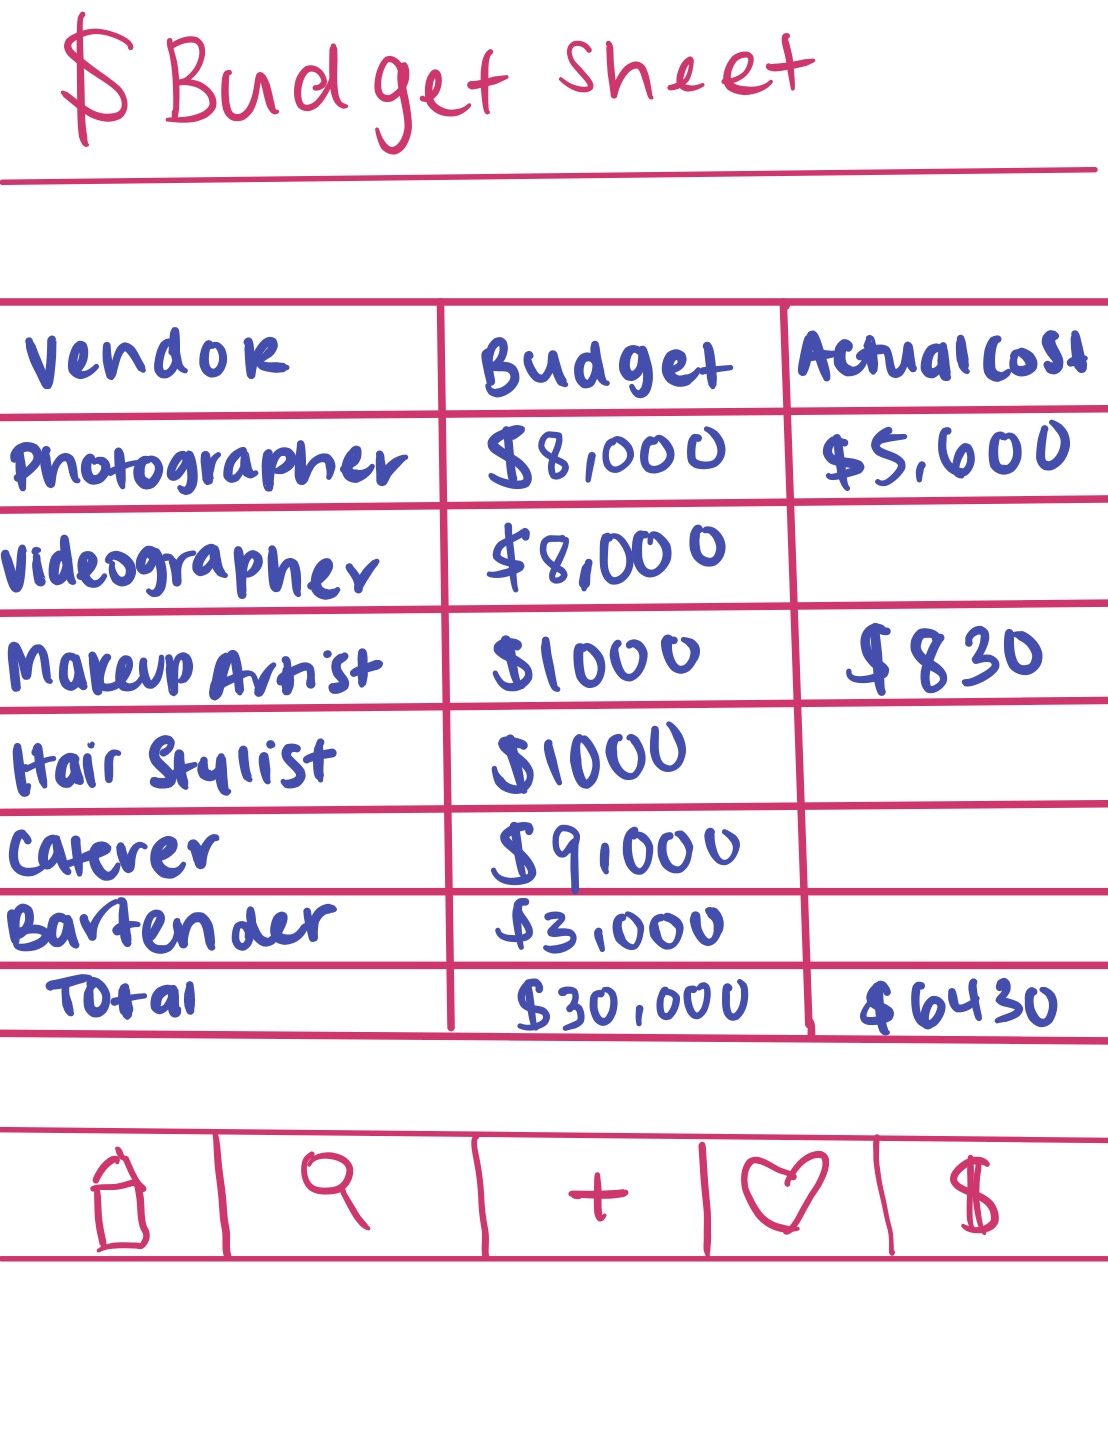 $ Budget sheet
Vendor Budget Actual Cost
Photographer $8,000 $5,600
Videographer $8,000
Makeup Artist $1000 $830
Hair Stylist $1000
Caterer $9,000
Bartender $3,000
Total $30,000 $6430
+ $